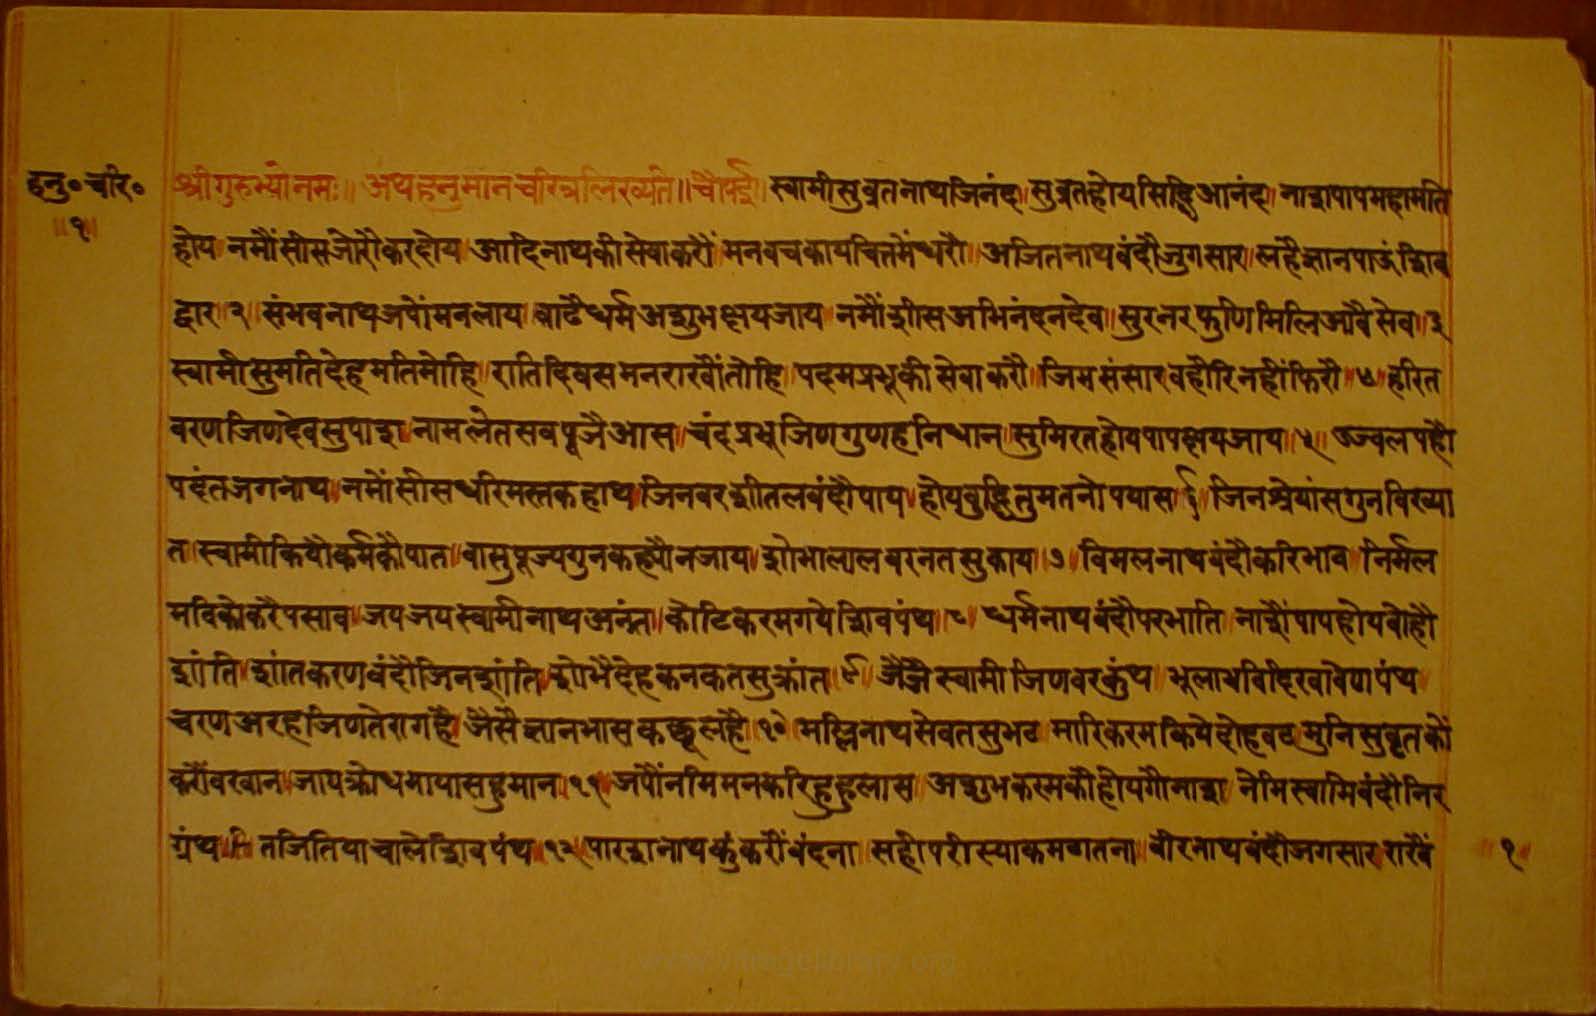 हनु॰चरि॰
॥१॥
श्रीगुरुभ्योनमः॥ अथहनुमानचरित्रलिख्यते॥चौपई॥ स्वामीसुव्रतनाथजिनंद॥सुव्रतहोयसिद्धिआनंद॥ नाशपापमहामति
होय॥नमौंसीसजोरौकरदोय॥आदिनाथकीसेवाकरौं॥मनवचकायचित्तमेंधरौ॥ अजितनाथबंदौजुगसार॥लहैज्ञानपाऊंशिव
द्वार॥२॥ संभवनाथजपोंमनलाय॥बाढैधर्मअशुभक्षयजाय॥नमौंशीसअभिनंदनदेव॥सुरनरफुणिमिलिआवैसेव॥३
स्वामीसुमतिदेहमतिमोहि॥ रातिदिवसमनराखौंतोहि॥ पदमप्रभूकीसेवाकरौ॥जिमसंसारबहौरिनहींफिरौ॥४॥हरित
वरणजिणदेवसुपाश॥नामलेतसबपूजैआस॥चंदप्रभूजिणगुणहनिधान॥सुमिरतहोयपापक्षयजाय॥५॥ उज्वलपहौ
पदंतजगनाथ॥नमोंसीसधरिमस्तकहाथ॥जिनवरशीतलबंदौपाय॥होयबुद्धितुमतनोपयास॥६॥जिनश्रेयांसगुनविख्या
त॥स्वामीकियौकर्मकौपात॥वासुपूज्यगुनकह्यौनजाय॥शोभालालवरनतसुकाय॥७॥ विमलनाथबंदौकरिभाव॥निर्मल
मविकोकरैपसाव॥जयजयस्वामीनाथअनंत॥कोटिकरमगयेशिवपंथ॥८॥ धर्मनाथबंदौपरभाति॥ नाशैंपापहोयबोहौ
शांति॥शांतकरणबंदौजिनशांति॥शोभैदेहकनकतसुक्रांत॥९॥ जैजैस्वामीजिणवरकुंथ॥
चरणअरहजिणतेरागहै॥जैसैज्ञानभासकछूलहै॥१०॥मल्लिनाथसेवतसुभट॥मारिकरमकियेदोहवट॥मुनिसुवृतकों
करौंबखान॥जायक्रोधमायासहुमान॥११॥जपौंनमिमनकरिहुहुलास॥ अशुभकरमकौहोयगौनाश॥ नेमिस्वामिबंदौनिर
ग्रंथ॥ तजितियाचालेशिवपंथ॥१२॥पारशनाथकुंकरौंबंदना॥ सहीपरीस्याकमठतना॥ वीरनाथबंदौजगसार॥राखैं
॥१॥